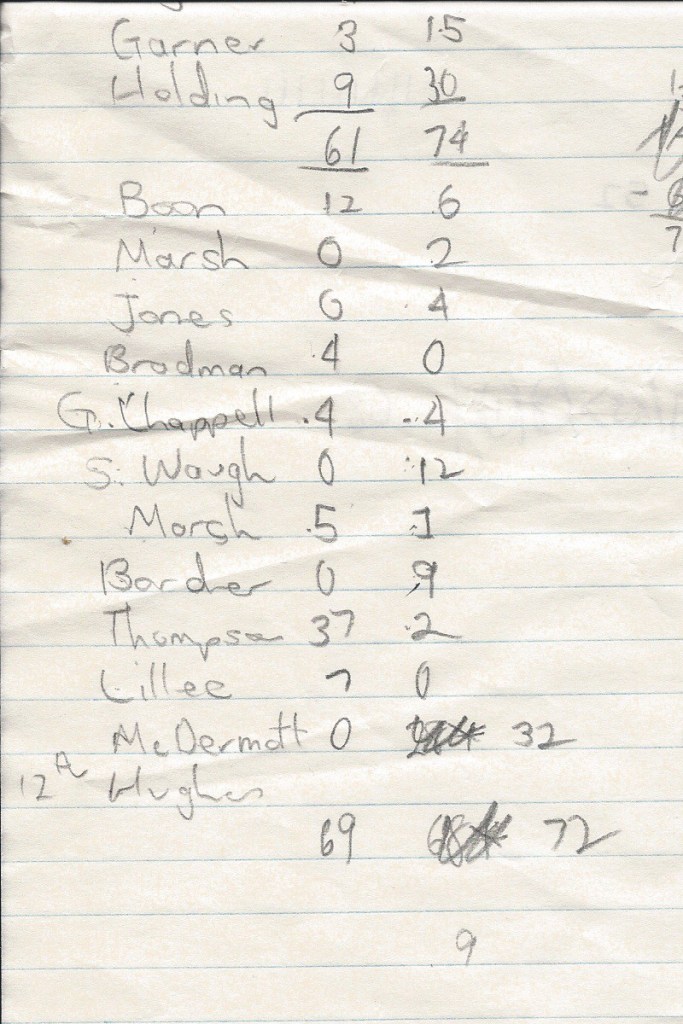 Garner 3 15
Holding 9 30
61 74
Boon 12 6
Marsh 0 2
Jones 0 4
Bradman 4 0
G. Chappell 4 4
S. Waugh 0 12
Marsh 5 1
Border 0 9
Thompson 37 2
Lillee 7 0
McDermott 0 32
12th Hughes
69 72
9